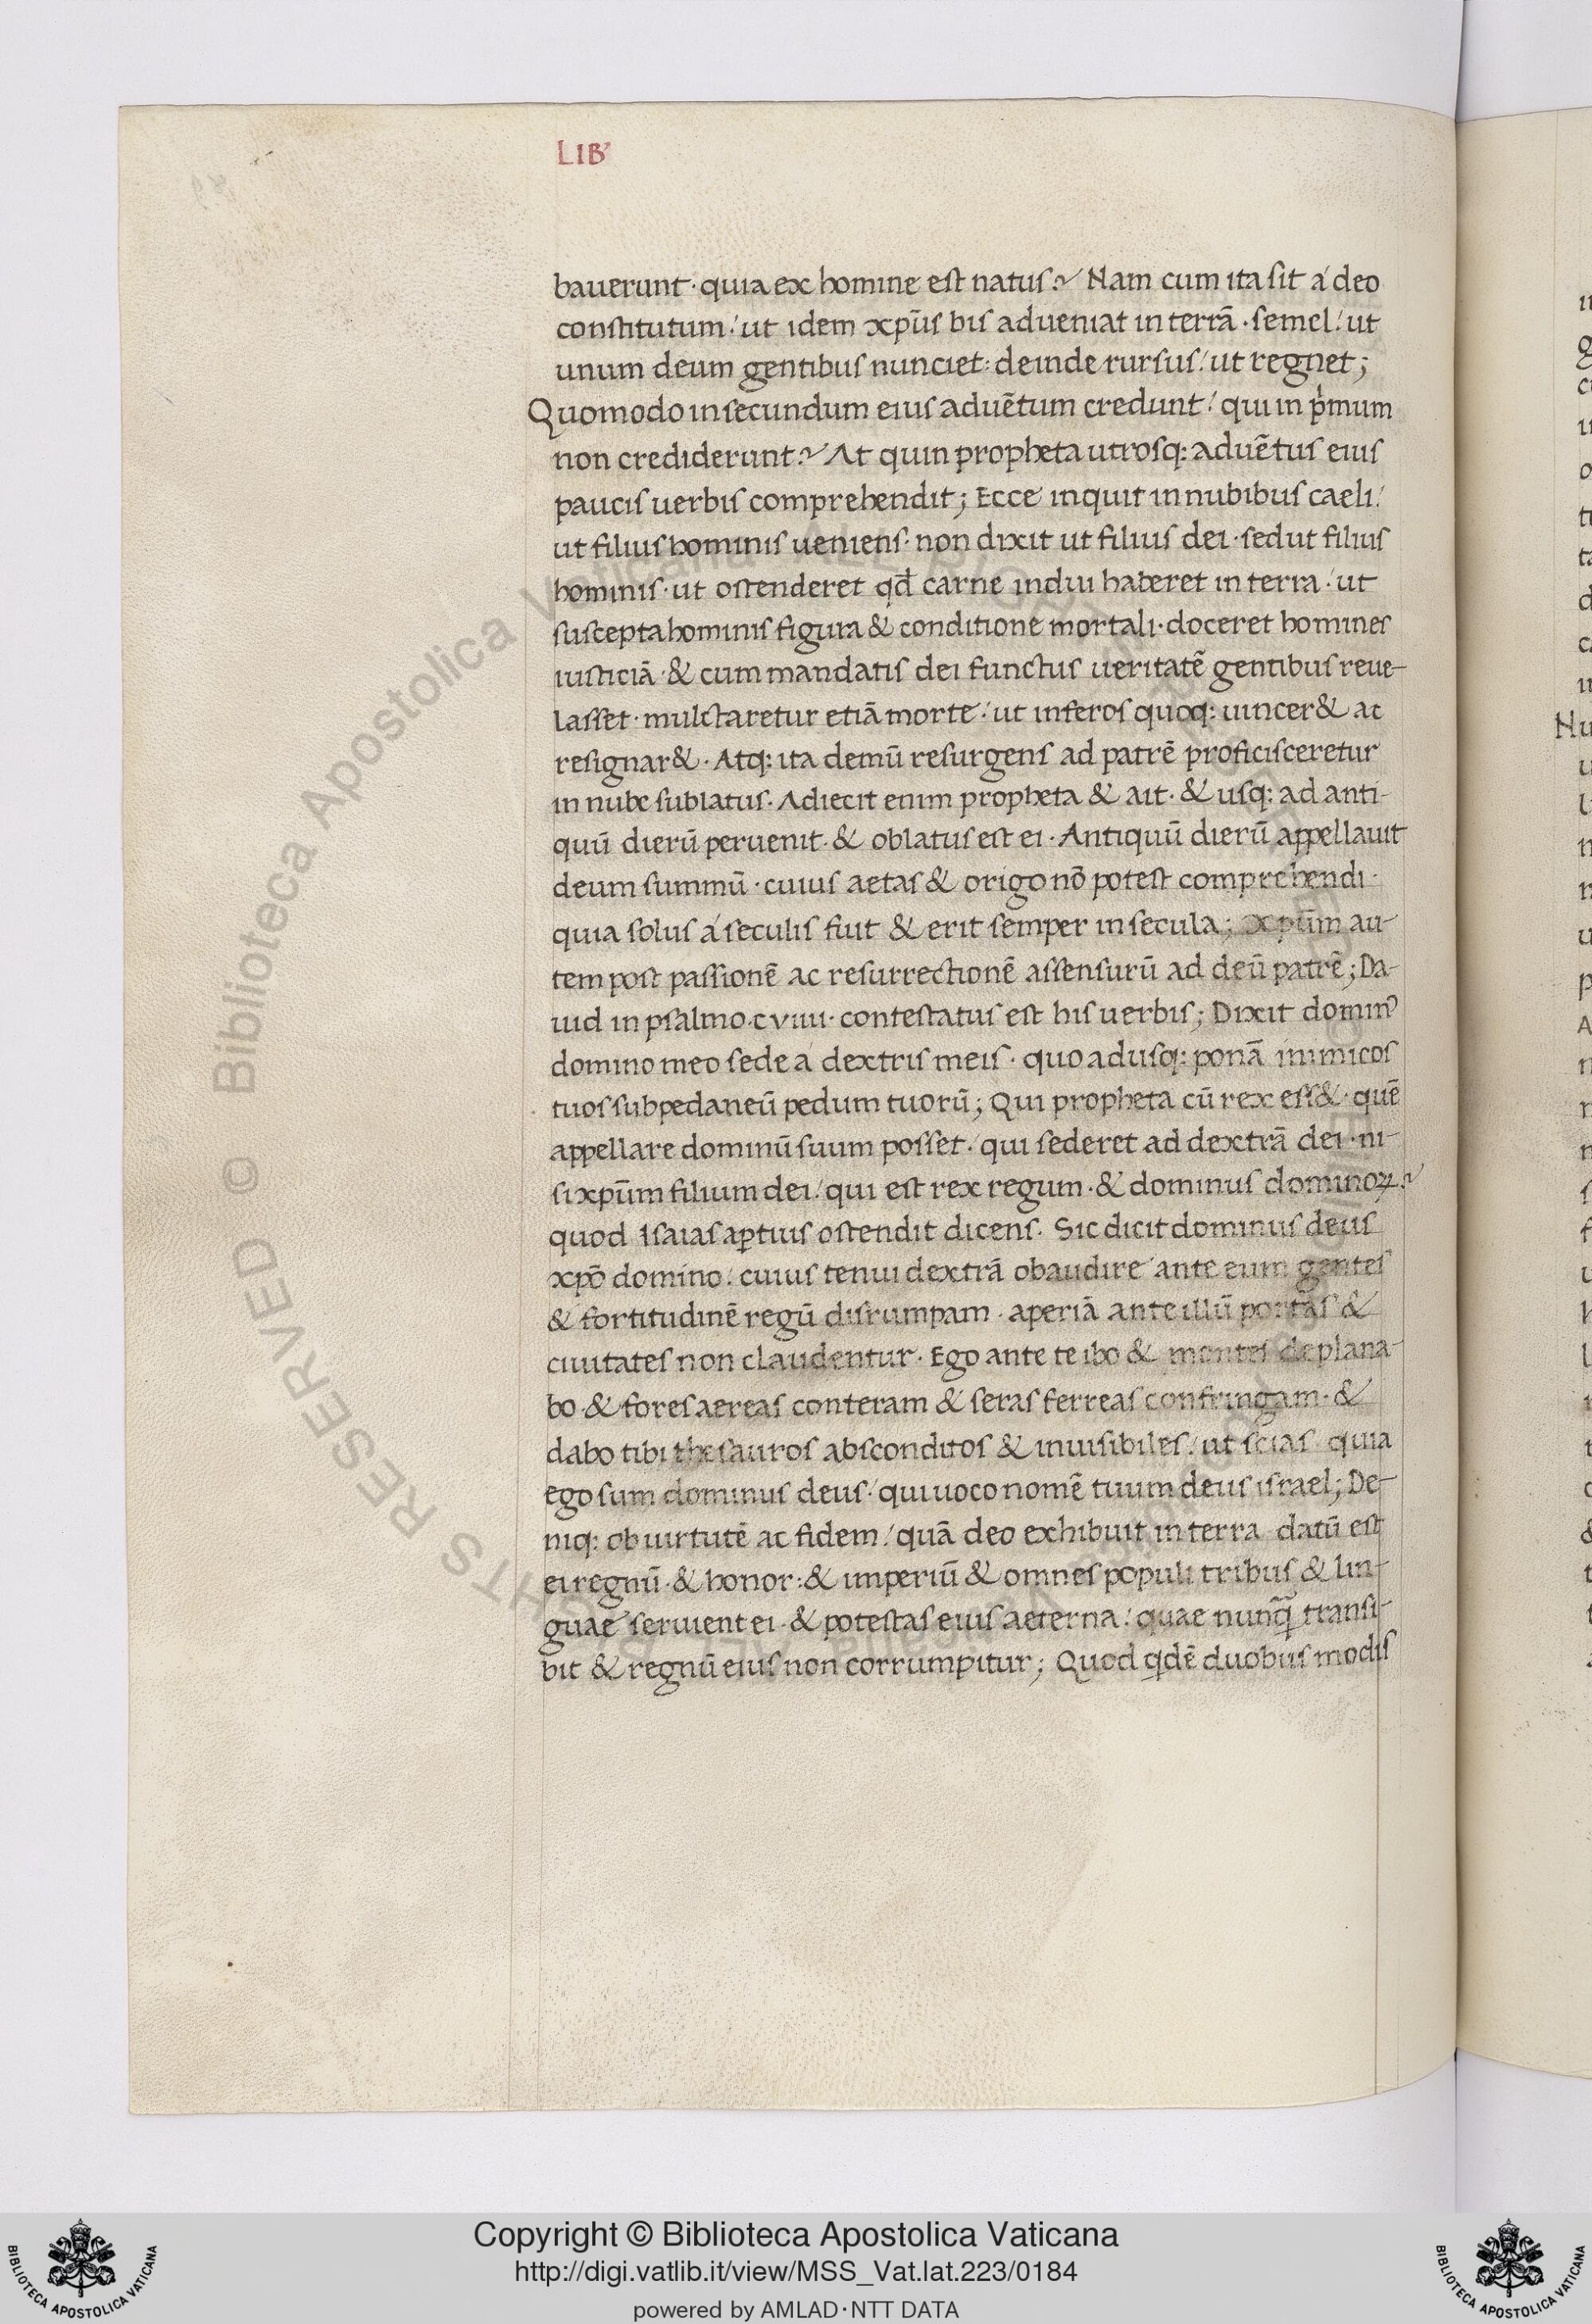 LIB
bauerunt · quia ex homine est natus? Nam cum ita sit á deo
constitutum / ut idem xp̄s bis adueniat in terrā · semel / ut
unum deum gentibus nunciet: deinde rursus / ut regnet ;
Quomodo in secundum eius aduētum credunt / qui in pͥmum
non crediderunt? At quin propheta utrosq: aduētus eius
paucis uerbis comprehendit ; Ecce inquit in nubibus caeli /
ut filius hominis ueniens · non dixit ut filius dei · sed ut filius
hominis · ut ostenderet qđ carne indui haberet in terra · ut
suscepta hominis figura & conditione mortali · doceret homines
iusticiā · & cum mandatis dei functus ueritatē gentibus reue-
lasset · mulctaretur etiā morte / ut inferos quoq: uincer& ac
resignar& · Atq: ita demū resurgens ad patrē proficisceretur
in nube sublatus · Adiecit enim propheta & ait · & usq: ad anti-
quū dierū peruenit · & oblatus est ei · Antiquū dierū appellauit
deum summū · cuius aetas & origo nō potest comprehendi ·
quia solus á seculis fuit & erit semper in secula ; xpūm au-
tem post passionē ac resurrectionē assensurū ad deū patrē ; Da-
uid in psalmo · c viiii · contestatus est his uerbis ; Dixit dominꝰ
domino meo sede á dextris meis · quo adusq: ponā inimicos
tuos subpedaneū pedum tuorū ; Qui propheta cū rex ess& · quē
appellare dominū suum posset · qui sederet ad dextrā dei · ni-
si xpūm filium dei / qui est rex regum · & dominus dominoꝝ ?
quod Isaias aꝑtius ostendit dicens · Sic dicit dominus deus
xpō domino / cuius tenui dextrā obaudire ante eum gentes
& fortitudinē regū disrumpam · aperiā ante illū portas &
ciuitates non claudentur · Ego ante te ibo & montes deplana-
bo · & fores aereas conteram & seras ferreas confringam · &
dabo tibi thesauros absconditos & inuisibiles / ut scias quia
ego sum dominus deus / qui uoco nomē tuum deus israel ; De-
niq: ob uirtutē ac fidem / quā deo exhibuit in terra datū est
ei regnū · & honor : & imperiū & omnes populi tribus & lin-
guae seruient ei · & potestas eius aeterna / quae nunꝗ̄ transi-
bit & regnū eius non corrumpitur ; Quod qͥdē duobus modis
© Biblioteca Apostolica Vaticana ALL RIGHTS RESERVED
Copyright © Biblioteca Apostolica Vaticana
http://digi.vatlib.it/view/MSS_Vat.lat.223/0184
powered by AMLAD·NTT DATA
BIBLIOTECA APOSTOLICA VATICANA
BIBLIOTECA APOSTOLICA VATICANA